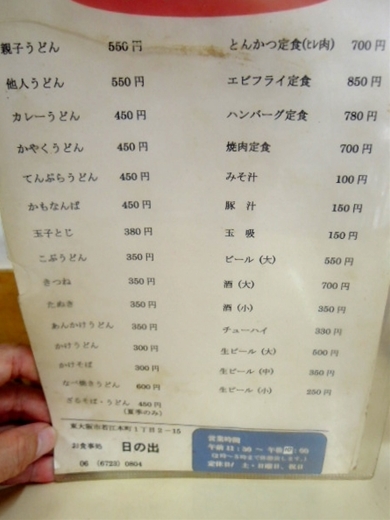 親子うどん 550円
他人うどん 550円
カレーうどん 450円
かやくうどん 450円
てんぷらうどん 450円
かもなんば 450円
玉子とじ 380円
こぶうどん 350円
きつね 350円
たぬき 350円
あんかけうどん 350円
かけうどん 300円
かけそば 300円
なべ焼きうどん 600円
ざるそば・うどん 450円
(夏季のみ)
とんかつ定食(ヒレ肉) 700円
エビフライ定食 850円
ハンバーグ定食 780円
焼肉定食 700円
みそ汁 100円
豚 汁 150円
玉 吸 150円
ビール (大) 550円
酒 (大) 700円
酒 (小) 350円
チューハイ 330円
生ビール (大) 500円
生ビール (中) 350円
生ビール (小) 250円
東大阪市若江本町1丁目2-15
お食事処 日の出
06 (6723) 0804
営業時間
午前11:30 ~ 午後 :00
定休日/ 土・日曜日、祝日